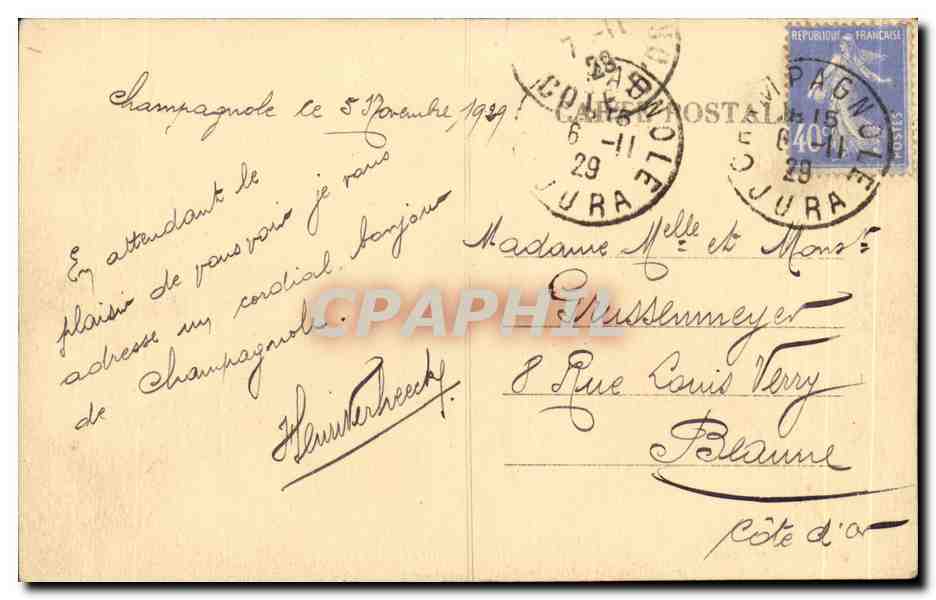 Champagnole le 5 Novembre 1929.
En attendant le
plaisir de vous voir je vous
adresse un cordial bonjour
de Champagnole.
Henri Verheecke
CARTE POSTALE
REPUBLIQUE FRANÇAISE
40c
POSTES
CHAMPAGNOLE
15
6-11
29
JURA
CHAMPAGNOLE
15
6-11
29
JURA
7-11
29
CÔTE D'OR
Madame Melle et Monsr
Grussenmeyer
8 Rue Louis Verry
Beaune
Côte d'or
CPAPHIL